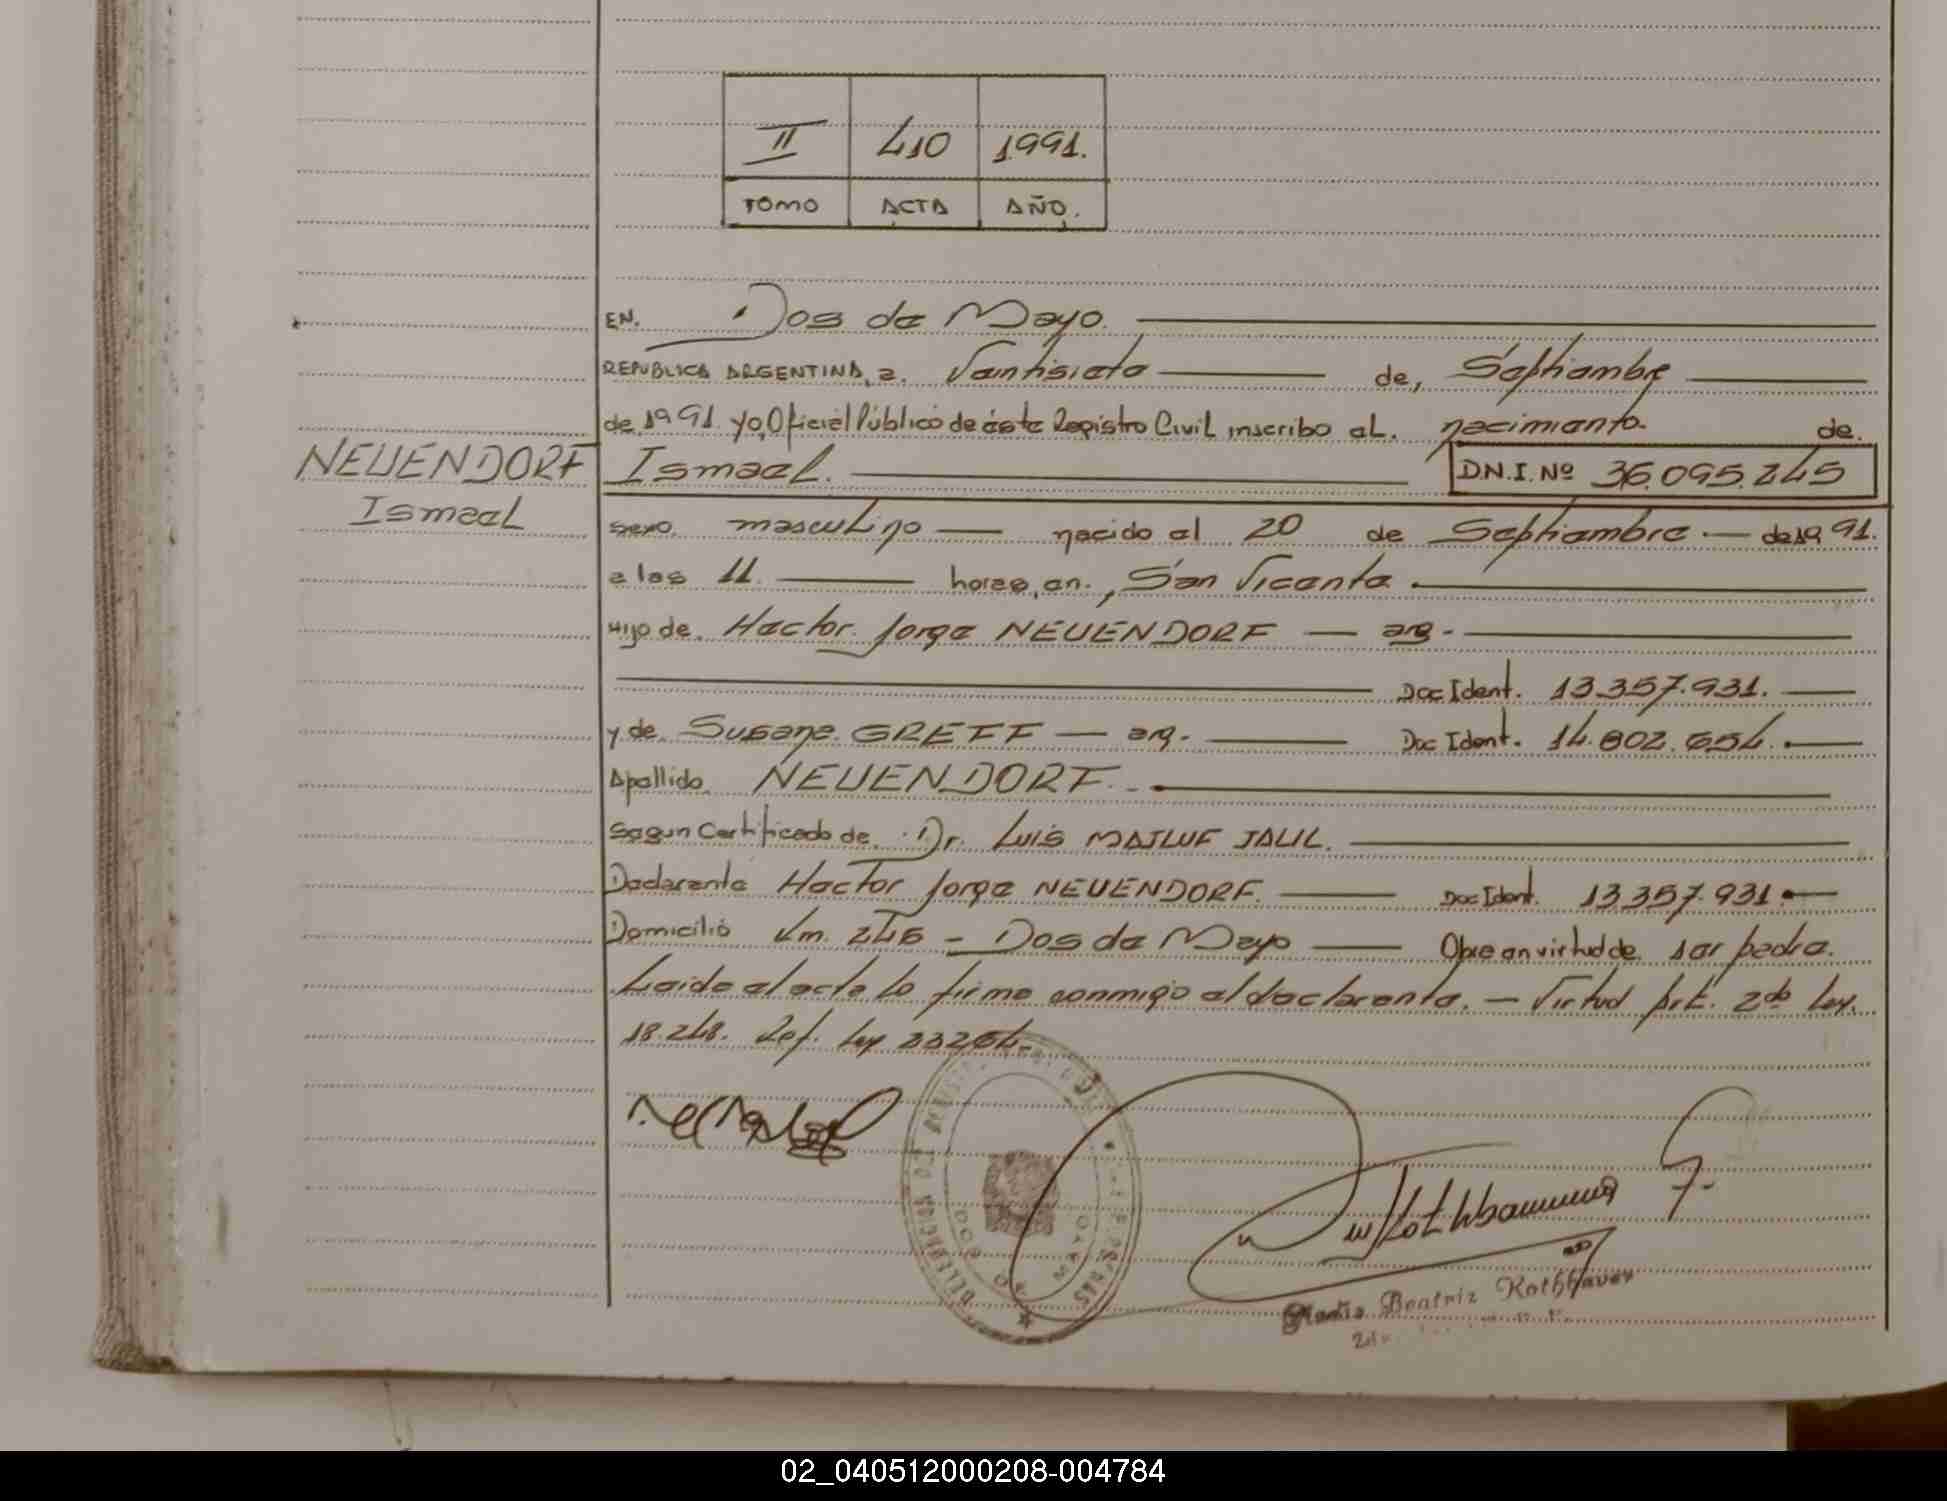 II 410 1991.
TOMO ACTA AÑO.
EN. Dos de Mayo.
REPUBLICA ARGENTINA, a. Veintisiete de, Septiembre
de 1991. yo, Oficial Público de éste Registro Civil inscribo el. nacimiento. de.
NEUENDORF Ismael. D.N.I. Nº 36.095.245
Ismael sexo. masculino nacido el 20 de Septiembre de 1991.
a las 11. horas, en, San Vicente
Hijo de. Hector Jorge NEUENDORF arg.
Doc Ident. 13.357.931.
y de Susana GREFF arg. Doc Ident. 14.802.654.
Apellido NEUENDORF.
Segun Certificado de Dr. Luis MAJLUF JALIL.
Declarante Hector Jorge NEUENDORF. Doc Ident. 13.357.931
Domicilio Km. 245 - Dos de Mayo Obre en virtud de ser padre.
Leido el acta lo firma conmigo el declarante. - Virtud Art. 2do Ley.
18.248. Ref. Ley 23264.
DELEGACION
DOS DE MAYO
Beatriz Rothhaver
02_040512000208-004784